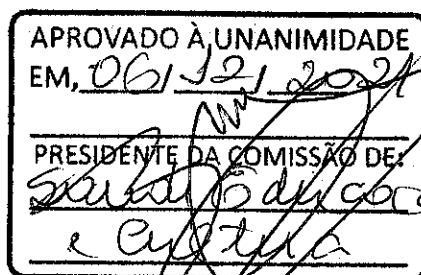 APROVADO À UNANIMIDADE
EM, 06/12/2021
PRESIDENTE DA COMISSÃO DE:
Saúde Educaç
e Cultura